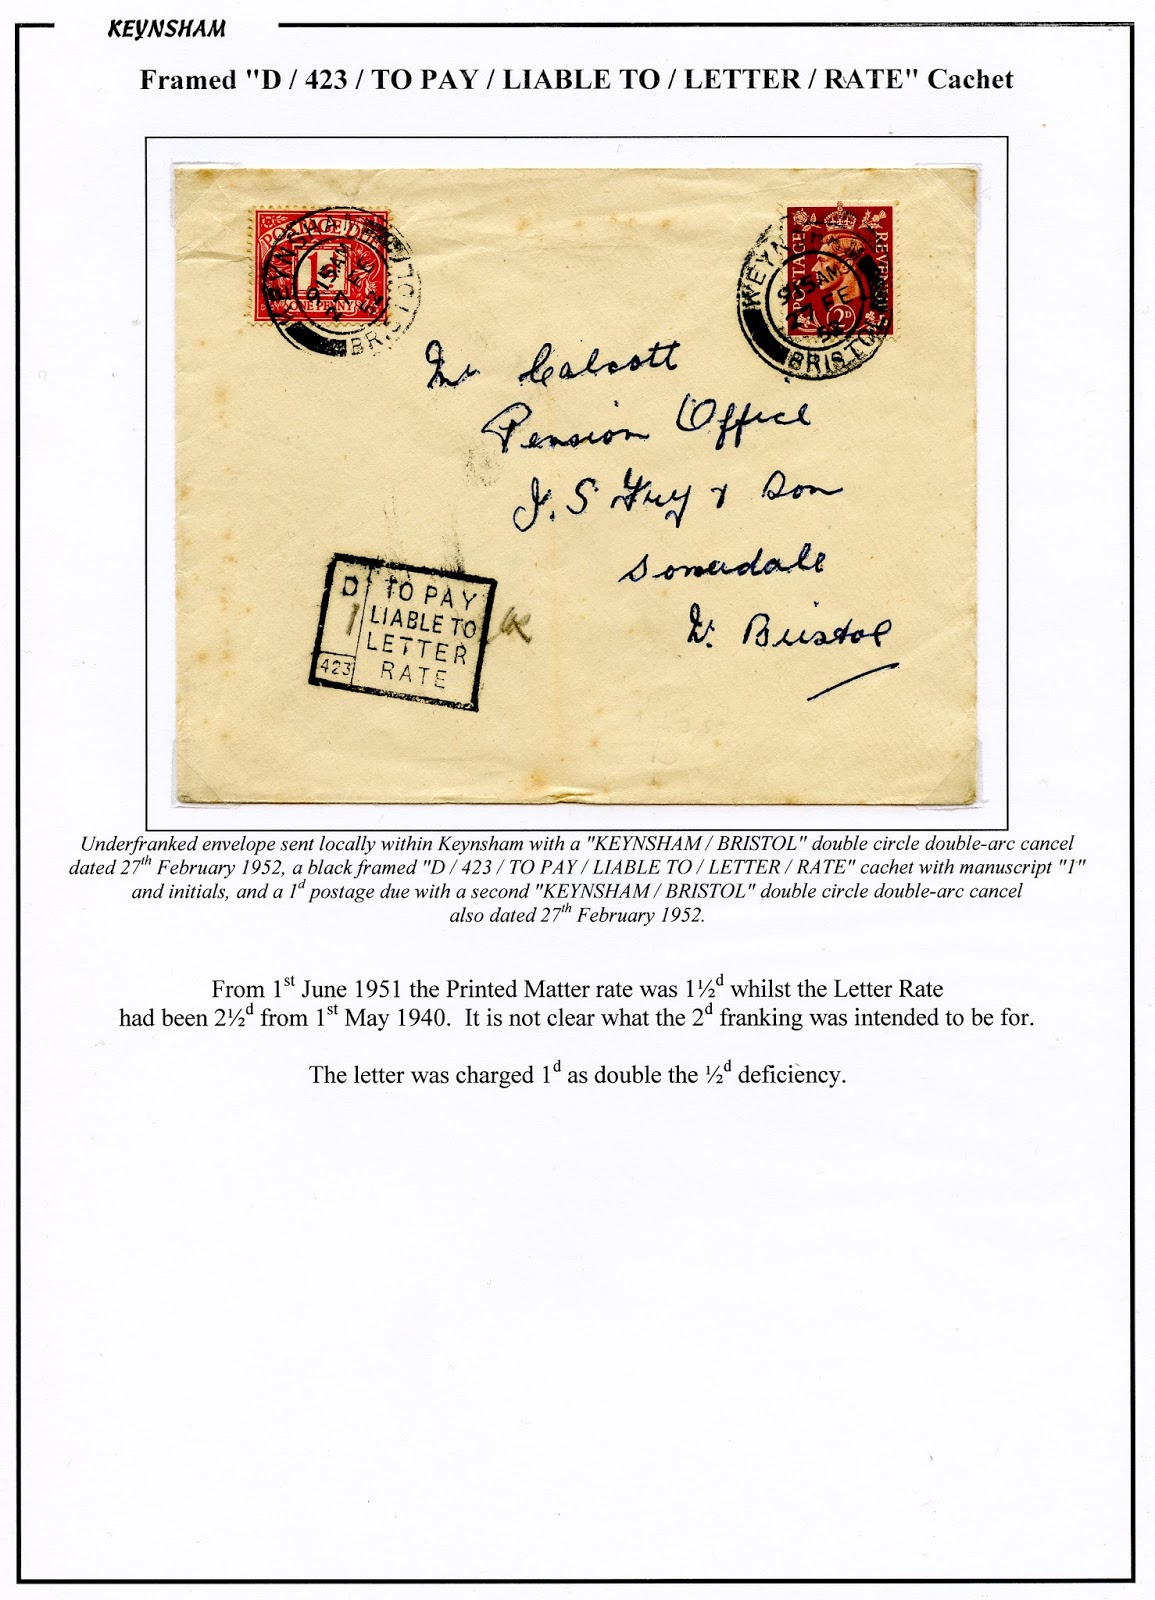 KEYNSHAM
Framed "D / 423 / TO PAY / LIABLE TO / LETTER / RATE" Cachet
POSTAGE DUE
1D
ONE PENNY
KEYNSHAM
915AM
27 FE
52
BRISTOL
POSTAGE REVENUE
2D
KEYNSHAM
915AM
27 FE
52
BRISTOL
Mr Calcott
Pension Office
J. S Fry & Son
Somerdale
Nr. Bristol
D
1
423
TO PAY
LIABLE TO
LETTER
RATE
Underfranked envelope sent locally within Keynsham with a "KEYNSHAM / BRISTOL" double circle double-arc cancel
dated 27th February 1952, a black framed "D / 423 / TO PAY / LIABLE TO / LETTER / RATE" cachet with manuscript "1"
and initials, and a 1d postage due with a second "KEYNSHAM / BRISTOL" double circle double-arc cancel
also dated 27th February 1952.
From 1st June 1951 the Printed Matter rate was 1½d whilst the Letter Rate
had been 2½d from 1st May 1940.  It is not clear what the 2d franking was intended to be for.
The letter was charged 1d as double the ½d deficiency.